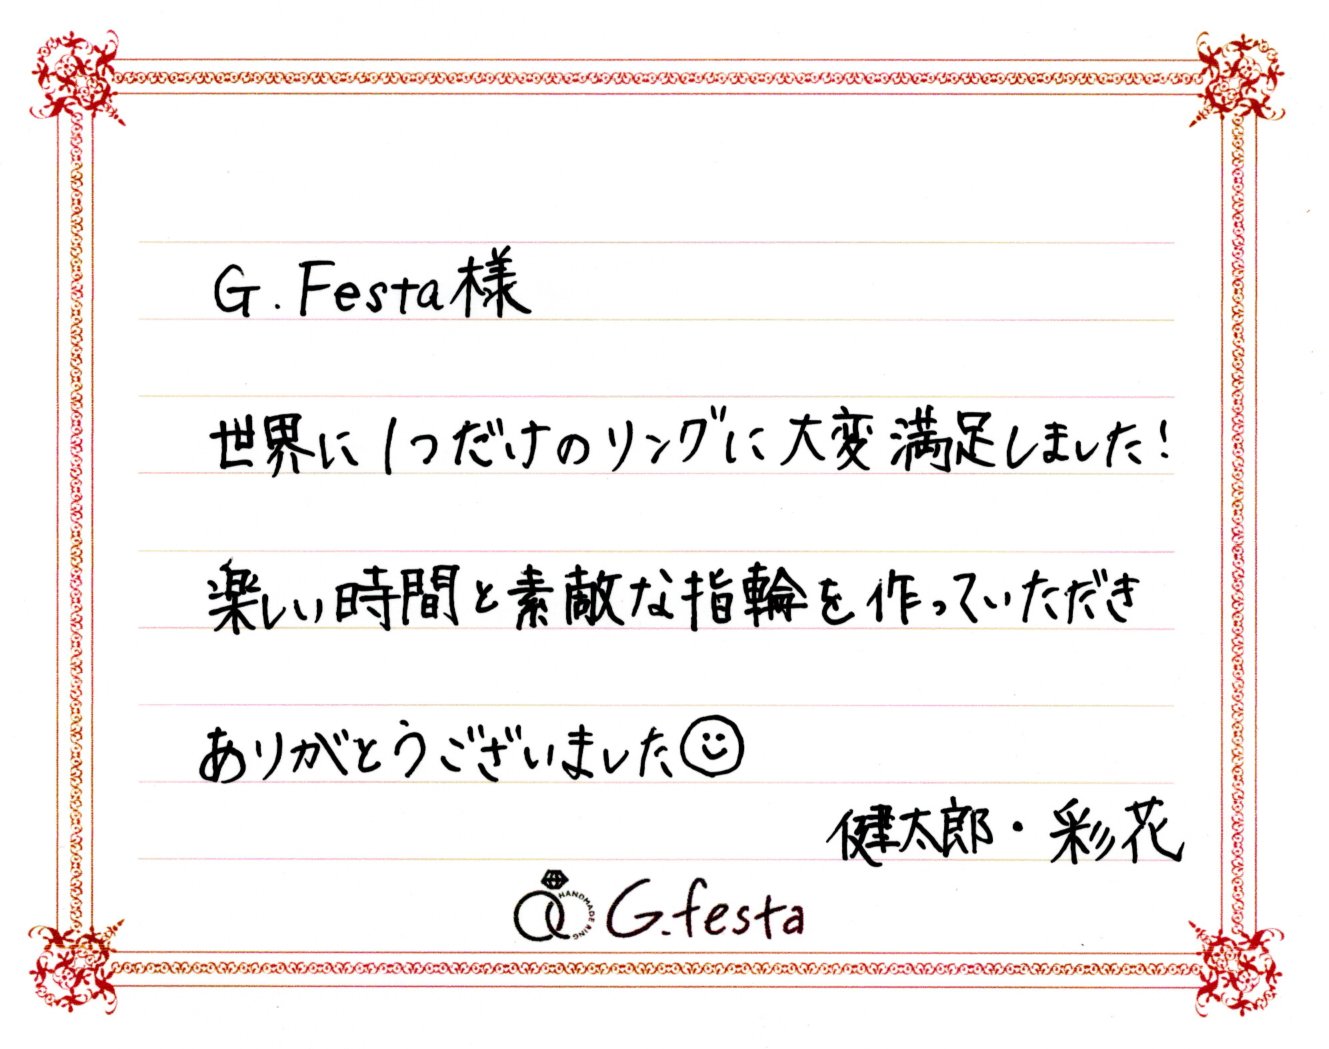 G. Festa様
世界に1つだけのリングに大変満足しました!
楽しい時間と素敵な指輪を作っていただき
ありがとうございました☺
健太郎・彩花
HANDMADE RING
G.festa